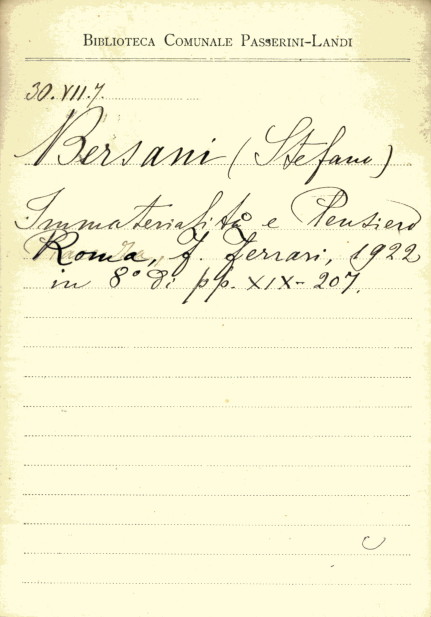 BIBLIOTECA COMUNALE PASSERINI-LANDI
30.VII.7.
Bersani (Stefano)
Immaterialità e Pensiero
Roma, F. Ferrari, 1922
in 8° di pp. XIX-207.